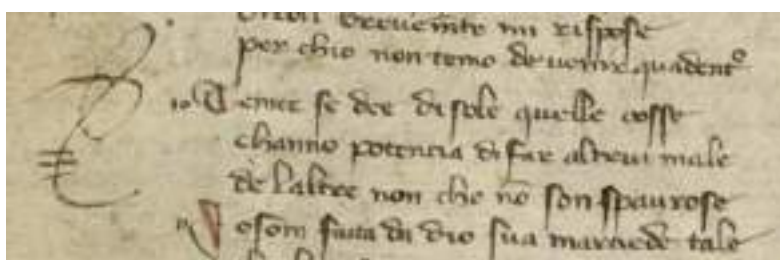 brevemte mi rispose
per chio non temo de venir quadento
Temer se dee di sole quelle cosse
channo potencia di far altrui male
de laltre non che nō son spaurose
Io som facta da dio sua mercede tale